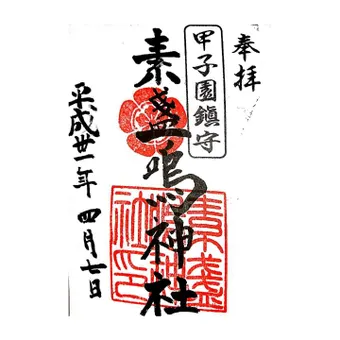 奉拝
甲子園鎮守
素盞嗚神社
平成卅一年 四月七日
素盞嗚神社之印